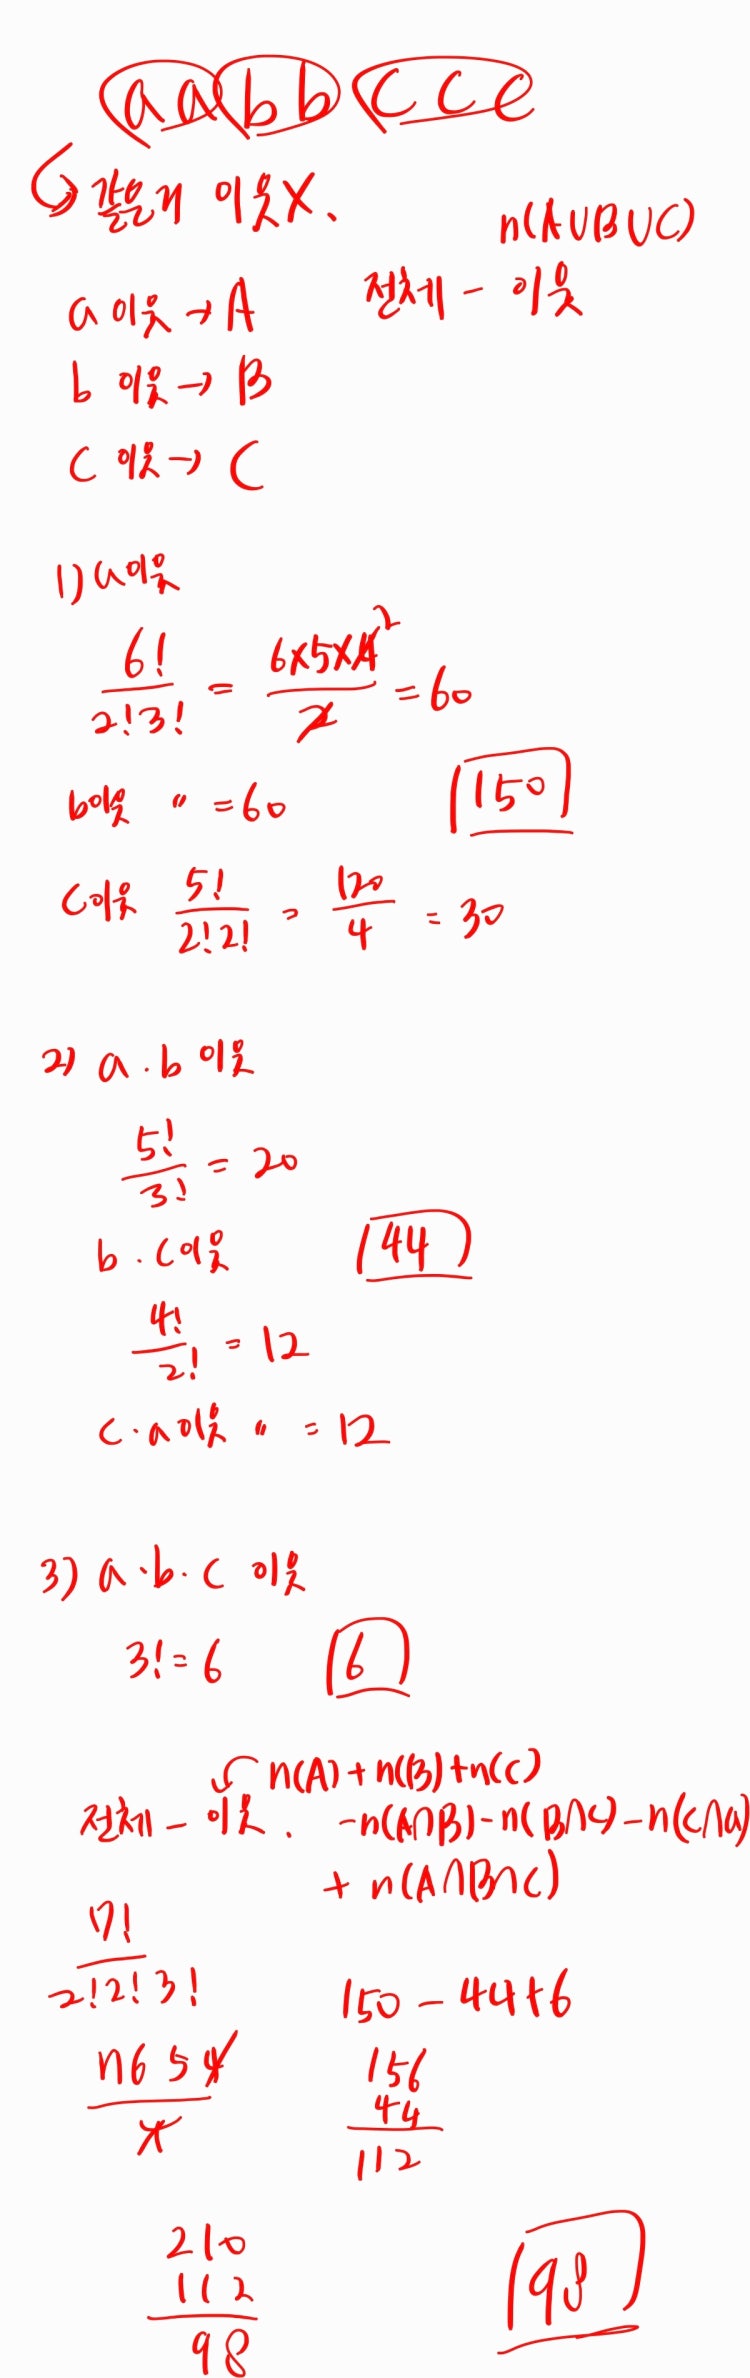 aabbccc
같은거 이웃X.
n(A∪B∪C)
a 이웃 → A
전체 - 이웃
b 이웃 → B
c 이웃 → C
1) a이웃
6!/2!3! = 6×5×4/2 2 = 60
b이웃 〃 = 60
150
c이웃 5!/2!2! = 120/4 = 30
2) a.b 이웃
5!/3! = 20
b.c이웃
44
4!/2! = 12
c.a이웃 〃 = 12
3) a.b.c 이웃
3! = 6
6
n(A)+n(B)+n(C)
전체 - 이웃. -n(A∩B)-n(B∩C)-n(C∩a)
+ n(A∩B∩C)
7!/2!2!3!
150 - 44+6
7 6 5 4/4
156
44
112
210
112
98
98